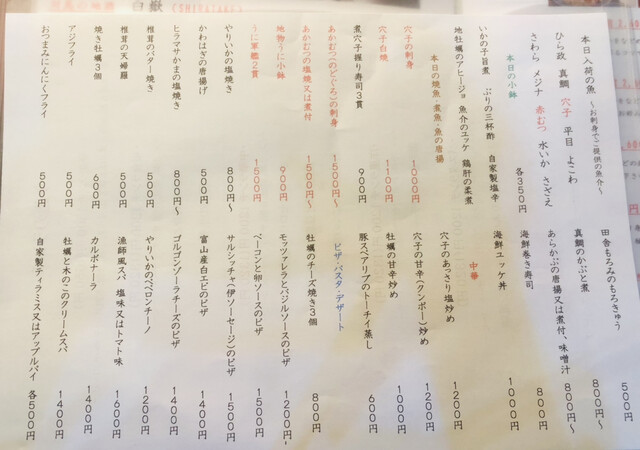 白嶽 (SHIRATAKE)
本日入荷の魚 ～お刺身でご提供の魚介～
ひら政 真鯛 穴子 平目 よこわ
さわら メジナ 赤むつ 水いか さざえ
本日の小鉢 各350円
いかの子旨煮 ぶりの三杯酢 自家製塩辛
地牡蠣のアヒージョ 魚介のユッケ 鶏肝の柔煮
本日の焼魚・煮魚・魚の唐揚
穴子の刺身 1000円
穴子白焼 1100円
煮穴子握り寿司3貫 900円
あかむつ(のどぐろ)の刺身 1500円～
あかむつの塩焼又は煮付 1500円～
地物うに小鉢 900円
うに軍艦2貫 1500円
やりいかの塩焼き 800円～
かわはぎの唐揚げ 500円
ヒラマサかまの塩焼き 800円～
椎茸のバター焼き 500円
椎茸の天婦羅 500円
焼き牡蠣3個 600円
アジフライ 500円
おつまみにんにくフライ 500円
田舎もろみのもろきゅう 500円
真鯛のかぶと煮 800円～
あらかぶの唐揚又は煮付、味噌汁 800円～
海鮮巻き寿司 800円
海鮮ユッケ丼 1000円
中華
穴子のあっさり塩炒め 1200円
穴子の甘辛(クンボー)炒め 1200円
牡蠣の甘辛炒め 1000円
豚スペアリブのトーチイ蒸し 600円
ピザ・パスタ・デザート
牡蠣のチーズ焼き3個 800円
モッツァレラとバジルソースのピザ 1200円
ベーコンと卵ソースのピザ 1500円
サルシッチャ(伊ソーセージ)のピザ 1500円
富山産白エビのピザ 1400円
ゴルゴンゾーラチーズのピザ 1400円
やりいかのペペロンチーノ 1200円
漁師風スパ 塩味又はトマト味 1600円
カルボナーラ 1400円
牡蠣と木のこのクリームスパ 1400円
自家製ティラミス又はアップルパイ 各500円